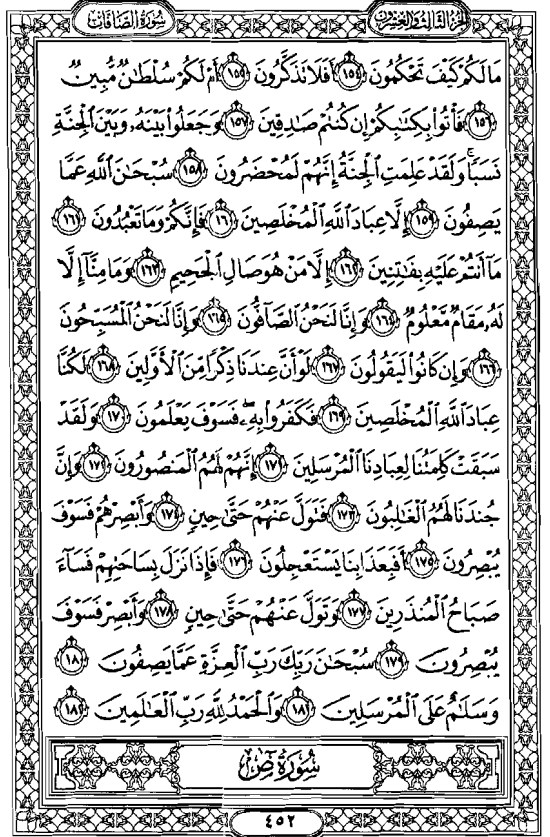 الجزء الثالث والعشرون سورة الصافات
مَا لَكُمْ كَيْفَ تَحْكُمُونَ ١٥٤ أَفَلَا تَذَكَّرُونَ ١٥٥ أَمْ لَكُمْ سُلْطَانٌ مُّبِينٌ
١٥٦ فَأْتُوا بِكِتَابِكُمْ إِن كُنتُمْ صَادِقِينَ ١٥٧ وَجَعَلُوا بَيْنَهُ وَبَيْنَ الْجِنَّةِ
نَسَبًا ۚ وَلَقَدْ عَلِمَتِ الْجِنَّةُ إِنَّهُمْ لَمُحْضَرُونَ ١٥٨ سُبْحَانَ اللَّهِ عَمَّا
يَصِفُونَ ١٥٩ إِلَّا عِبَادَ اللَّهِ الْمُخْلَصِينَ ١٦٠ فَإِنَّكُمْ وَمَا تَعْبُدُونَ ١٦١
مَا أَنتُمْ عَلَيْهِ بِفَاتِنِينَ ١٦٢ إِلَّا مَنْ هُوَ صَالِ الْجَحِيمِ ١٦٣ وَمَا مِنَّا إِلَّا
لَهُ مَقَامٌ مَّعْلُومٌ ١٦٤ وَإِنَّا لَنَحْنُ الصَّافُّونَ ١٦٥ وَإِنَّا لَنَحْنُ الْمُسَبِّحُونَ
١٦٦ وَإِن كَانُوا لَيَقُولُونَ ١٦٧ لَوْ أَنَّ عِندَنَا ذِكْرًا مِّنَ الْأَوَّلِينَ ١٦٨ لَكُنَّا
عِبَادَ اللَّهِ الْمُخْلَصِينَ ١٦٩ فَكَفَرُوا بِهِ ۖ فَسَوْفَ يَعْلَمُونَ ١٧٠ وَلَقَدْ
سَبَقَتْ كَلِمَتُنَا لِعِبَادِنَا الْمُرْسَلِينَ ١٧١ إِنَّهُمْ لَهُمُ الْمَنصُورُونَ ١٧٢ وَإِنَّ
جُندَنَا لَهُمُ الْغَالِبُونَ ١٧٣ فَتَوَلَّ عَنْهُمْ حَتَّىٰ حِينٍ ١٧٤ وَأَبْصِرْهُمْ فَسَوْفَ
يُبْصِرُونَ ١٧٥ أَفَبِعَذَابِنَا يَسْتَعْجِلُونَ ١٧٦ فَإِذَا نَزَلَ بِسَاحَتِهِمْ فَسَاءَ
صَبَاحُ الْمُنذَرِينَ ١٧٧ وَتَوَلَّ عَنْهُمْ حَتَّىٰ حِينٍ ١٧٨ وَأَبْصِرْ فَسَوْفَ
يُبْصِرُونَ ١٧٩ سُبْحَانَ رَبِّكَ رَبِّ الْعِزَّةِ عَمَّا يَصِفُونَ ١٨٠
وَسَلَامٌ عَلَى الْمُرْسَلِينَ ١٨١ وَالْحَمْدُ لِلَّهِ رَبِّ الْعَالَمِينَ ١٨٢
سُورَةُ صٓ
٤٥٢